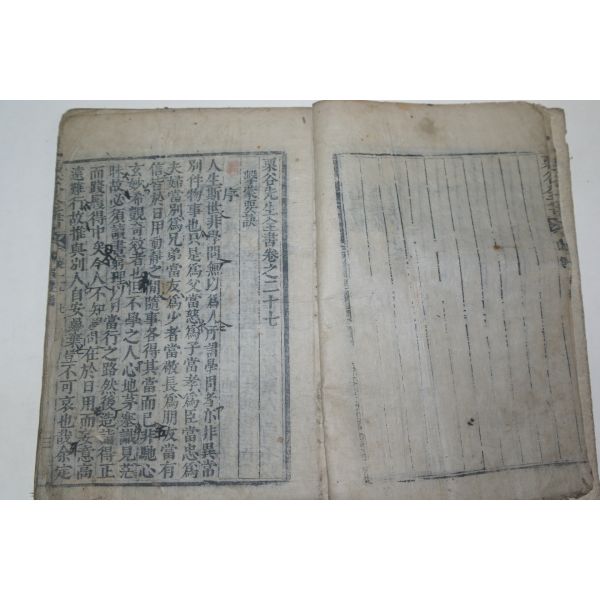 栗谷先生全書卷之二十七
擊蒙要訣
序
人生斯世非學問無以爲人所謂學問者亦非異常
別件物事也只是爲父當慈爲子當孝爲臣當忠爲
夫婦當別爲兄弟當友爲少者當敬長爲朋友當有
信皆於日用動靜之間隨事各得其當而已非馳心
玄妙希覬奇效者也但不學之人心地茅塞識見茫
昧故必須讀書窮理以明當行之路然後造詣得正
而踐履得中矣今人不知學問在於日用而妄意高
遠難行故推與別人自安暴棄豈不可哀也哉余定